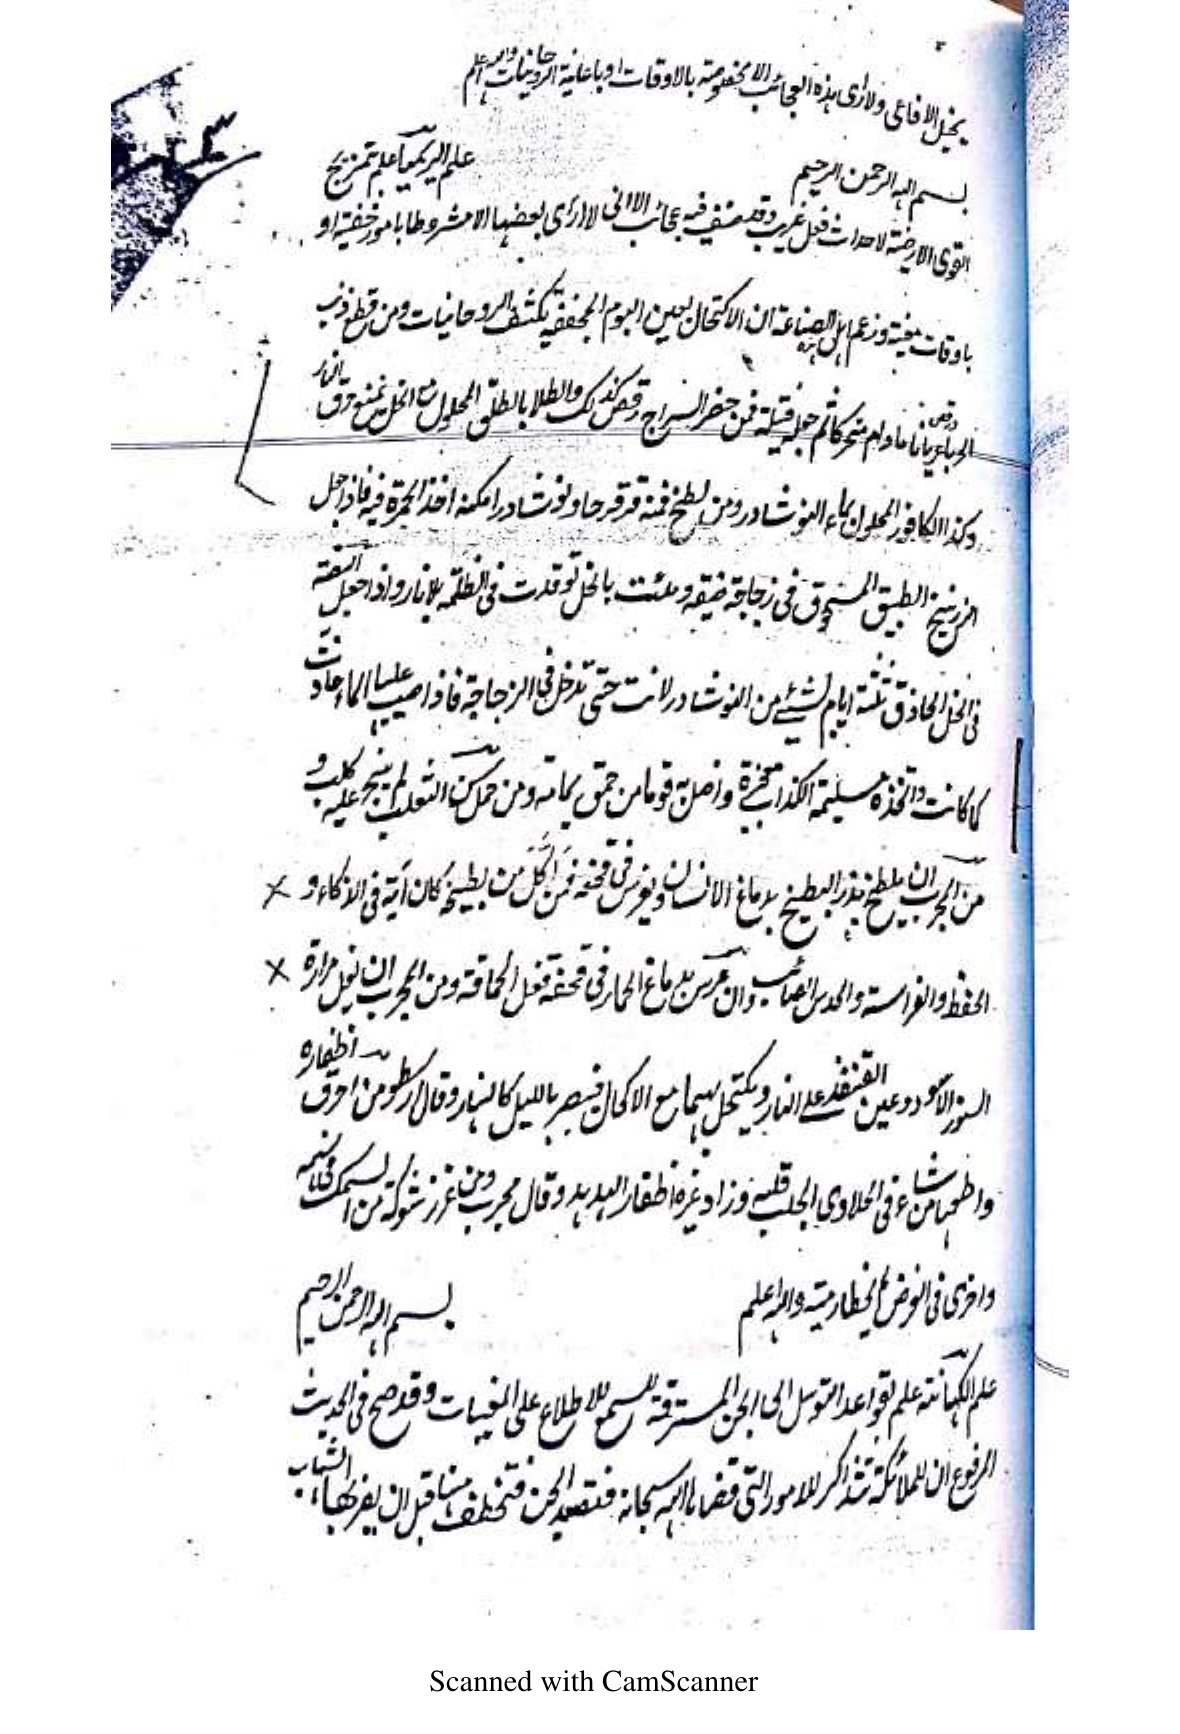 يخيل الافاعى ولا ارى هذه العجائب الا مخصوصة بالاوقات او باعانة الروحانيات والله اعلم
بسم الله الرحمن الرحيم علم الريميا علم تمزيج
القوى الارضية لاحداث فعل غريب وقد صنف فيه عجائب الا انى لا ارى بعضها الا مشروطا بامور خفية او
باوقات معينة وزعم اهل هذه الصناعة ان الاكتحال بعين البوم المجففة يكشف الروحانيات ومن قطع ذنب
الحرباء رقص عريانا ما دام متحركا ثم جعله فتيلة فمن حضر السراج رقص كذلك والطلا بالطلق المحلول مع الخل يمنع حرق النار
وكذا الكافور المحلول بماء النوشادر ومن لطخ فمه قرقرحا ونوشادرا مكنه اخذ الجمرة فيه فاذا جعل
الزرنيخ الطبيق المسحوق فى زجاجة ضيقه وملئت بالخل توقدت فى الظلمة بلا نار واذا جعل البيضة
فى الخل الحاذق ثلثة ايام لشيئ من النوشادر لانت حتى تدخل فى الزجاجة فاذا صب عليها الماء عادت
كما كانت واتخذه مسيلمة الكذاب معجزة واضل به قوما من حمق يمامة ومن حمل سن الثعلب لم ينبح عليه كلب و
من المجرب ان يلطخ بذر البطيخ بدماغ الانسان ويغرس فى قحفه فمن اكل من بطيخه كان آية فى الذكاء و
الحفظ والفراسة والحدس الصائب وان غرس بدماغ الحمار فى قحفه فعل الحماقة ومن المجرب ان يغل مرارة
السنور الاسود وعين القنفذ على النار ويكتحل بهما مع الاكحال فيبصر بالليل كالنهار وقال ارسطو من احرق اظفاره
واطعمها من شاء فى الحلاوى الجلب قلبه وزاد غيره اظفار الهدهد وقال مجرب ومن غرز شوكة من السمك فى لاسمه
واخرى فى الغرض لم يخطا رميته والله اعلم بسم الله الرحمن الرحيم
علم الكهانة علم بقواعد التوسل الى الجن المسترقة للسمع للاطلاع على المغيبات وقد صح فى الحديث
المرفوع ان للملائكة تتذاكر للامور التى قضاها الله سبحانه فتقصد الجن فتخطف منها قبل ان يضربها الشهاب
Scanned with CamScanner